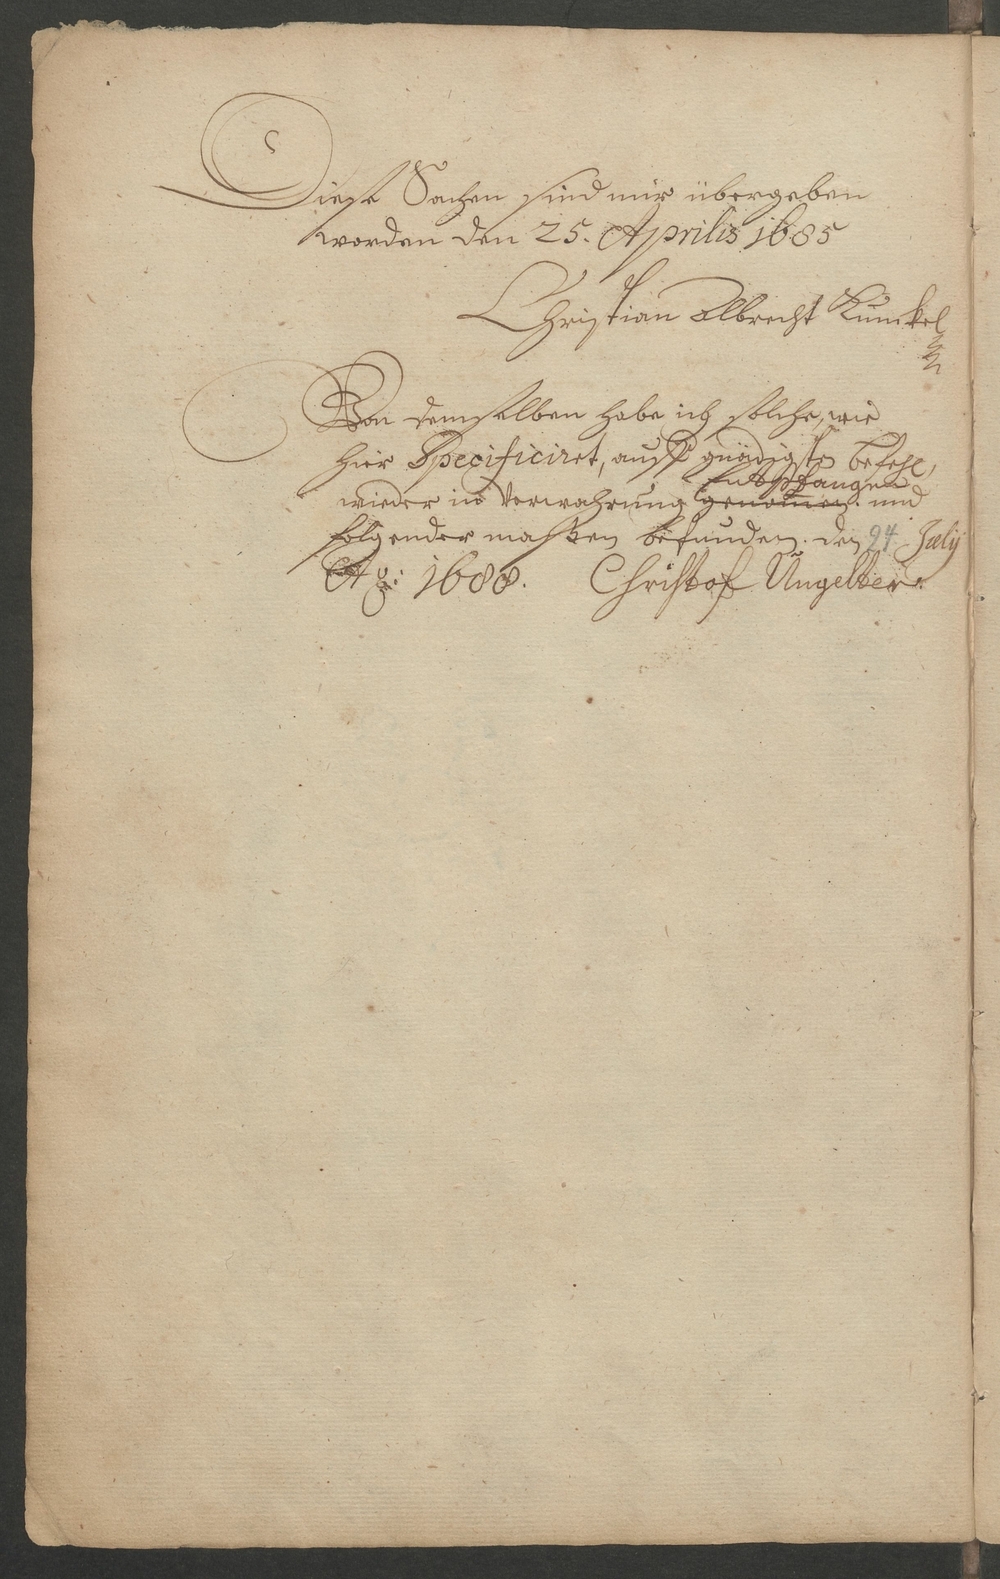 Diese Sachen sind mir übergeben
worden den 25. Aprilis 1685
Christian Albrecht Kunckel
Von demselben habe ich solche, wie
hier Specificiret, auff gnädigsten befehl,
Entpfangen
wieder in Verwahrung genomen. und
folgender maßen befunden. den 24 July
Ao: 1688. Christof Ungelter.